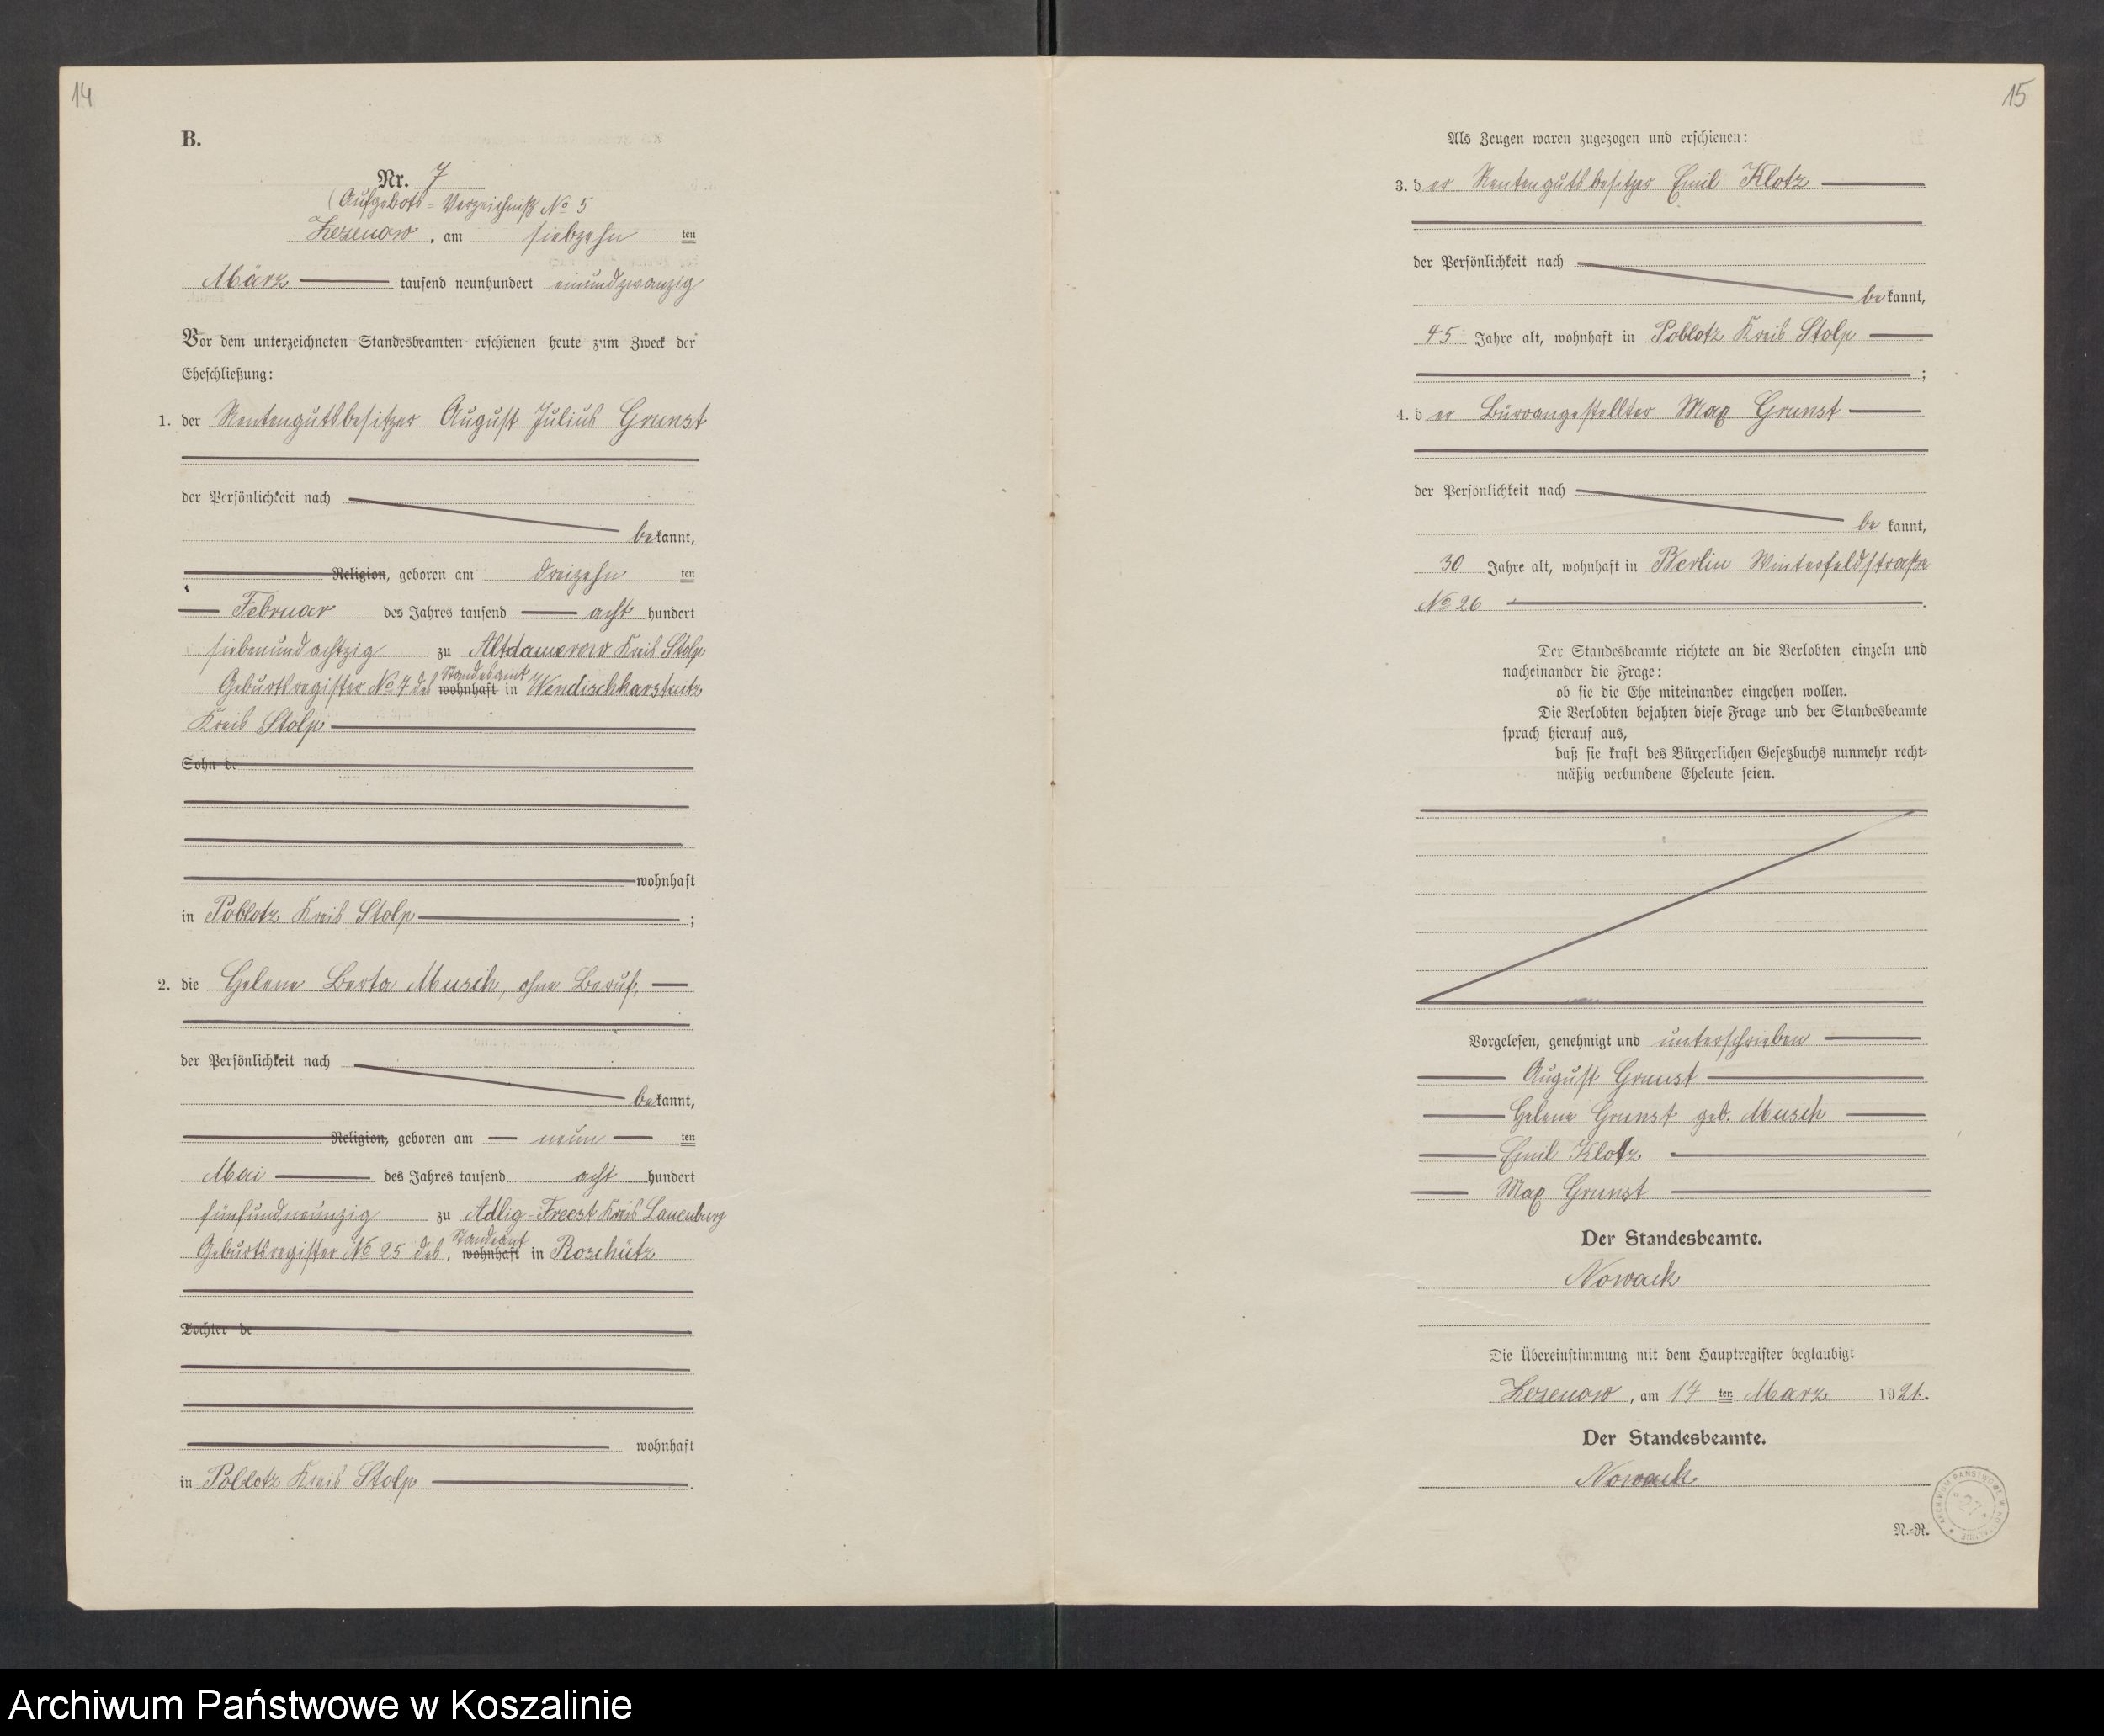 14
B.
Nr. 7
(Aufgebots=Verzeichniß No 5
Zezenow, am siebzehn ten
März tausend neunhundert einundzwanzig
Vor dem unterzeichneten Standesbeamten erschienen heute zum Zweck der
Eheschließung:
1. der Rentengutsbesitzer August Julius Grunst
der Persönlichkeit nach
bekannt,
Religion, geboren am dreizehn ten
Februar des Jahres tausend acht hundert
siebenundachtzig zu Altdamerow Kreis Stolp
Geburtsregister No 7 des Standesamt wohnhaft in Wendischkarstnitz
Kreis Stolp
Sohn de
wohnhaft
in Poblotz Kreis Stolp ;
2. die Helene Berta Musch, ohne Beruf,
der Persönlichkeit nach
bekannt,
Religion, geboren am neun ten
Mai des Jahres tausend acht hundert
fünfundneunzig zu Adlig=Freest Kreis Lauenburg
Geburtsregister No 25 des, Standeamt wohnhaft in Roschütz
Tochter de
wohnhaft
in Poblotz Kreis Stolp .
15
Als Zeugen waren zugezogen und erschienen:
3. der Rentengutsbesitzer Emil Klotz
der Persönlichkeit nach
bekannt,
45 Jahre alt, wohnhaft in Poblotz Kreis Stolp
;
4. der Büroangestellter Max Grunst
der Persönlichkeit nach
bekannt,
30 Jahre alt, wohnhaft in Berlin Winterfeldstraße
No 26 .
Der Standesbeamte richtete an die Verlobten einzeln und
nacheinander die Frage:
ob sie die Ehe miteinander eingehen wollen.
Die Verlobten bejahten diese Frage und der Standesbeamte
sprach hierauf aus,
daß sie kraft des Bürgerlichen Gesetzbuchs nunmehr recht=
mäßig verbundene Eheleute seien.
Vorgelesen, genehmigt und unterschrieben
August Grunst
Helene Grunst geb. Musch
Emil Klotz
Max Grunst
Der Standesbeamte.
Nowack
Die Übereinstimmung mit dem Hauptregister beglaubigt
Zezenow, am 17 ten März 1921.
Der Standesbeamte.
Nowack
N.=R.
ARCHIWUM PAŃSTWOWE W KOSZALINIE
27
Archiwum Państwowe w Koszalinie